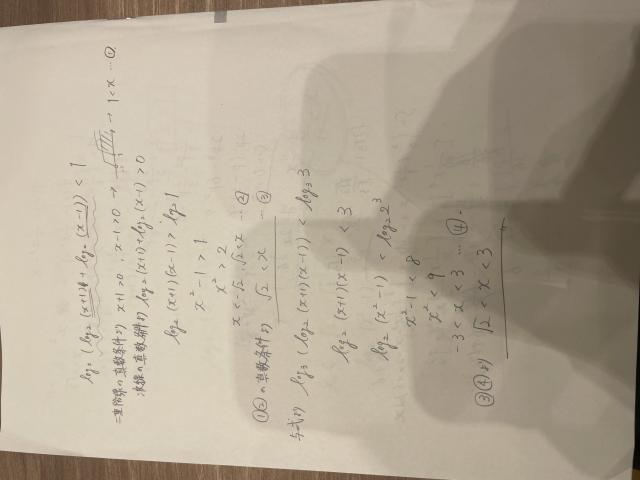 log₃ (log₂ (x+1) + log₂ (x-1)) < 1
二重傍線の真数条件より x+1>0, x-1>0 → → 1<x …①
波線の真数条件より log₂(x+1)+log₂(x-1) > 0
log₂ (x+1)(x-1) > log₂ 1
x² -1 > 1
x² > 2
x<-√2, √2<x …②
①②の真数条件より √2 < x …③
与式より log₃ (log₂ (x+1)(x-1)) < log₃ 3
log₂ (x+1)(x-1) < 3
log₂ (x²-1) < log₂ 2³
x²-1 < 8
x² < 9
-3 < x < 3 …④.
③④より √2 < x < 3